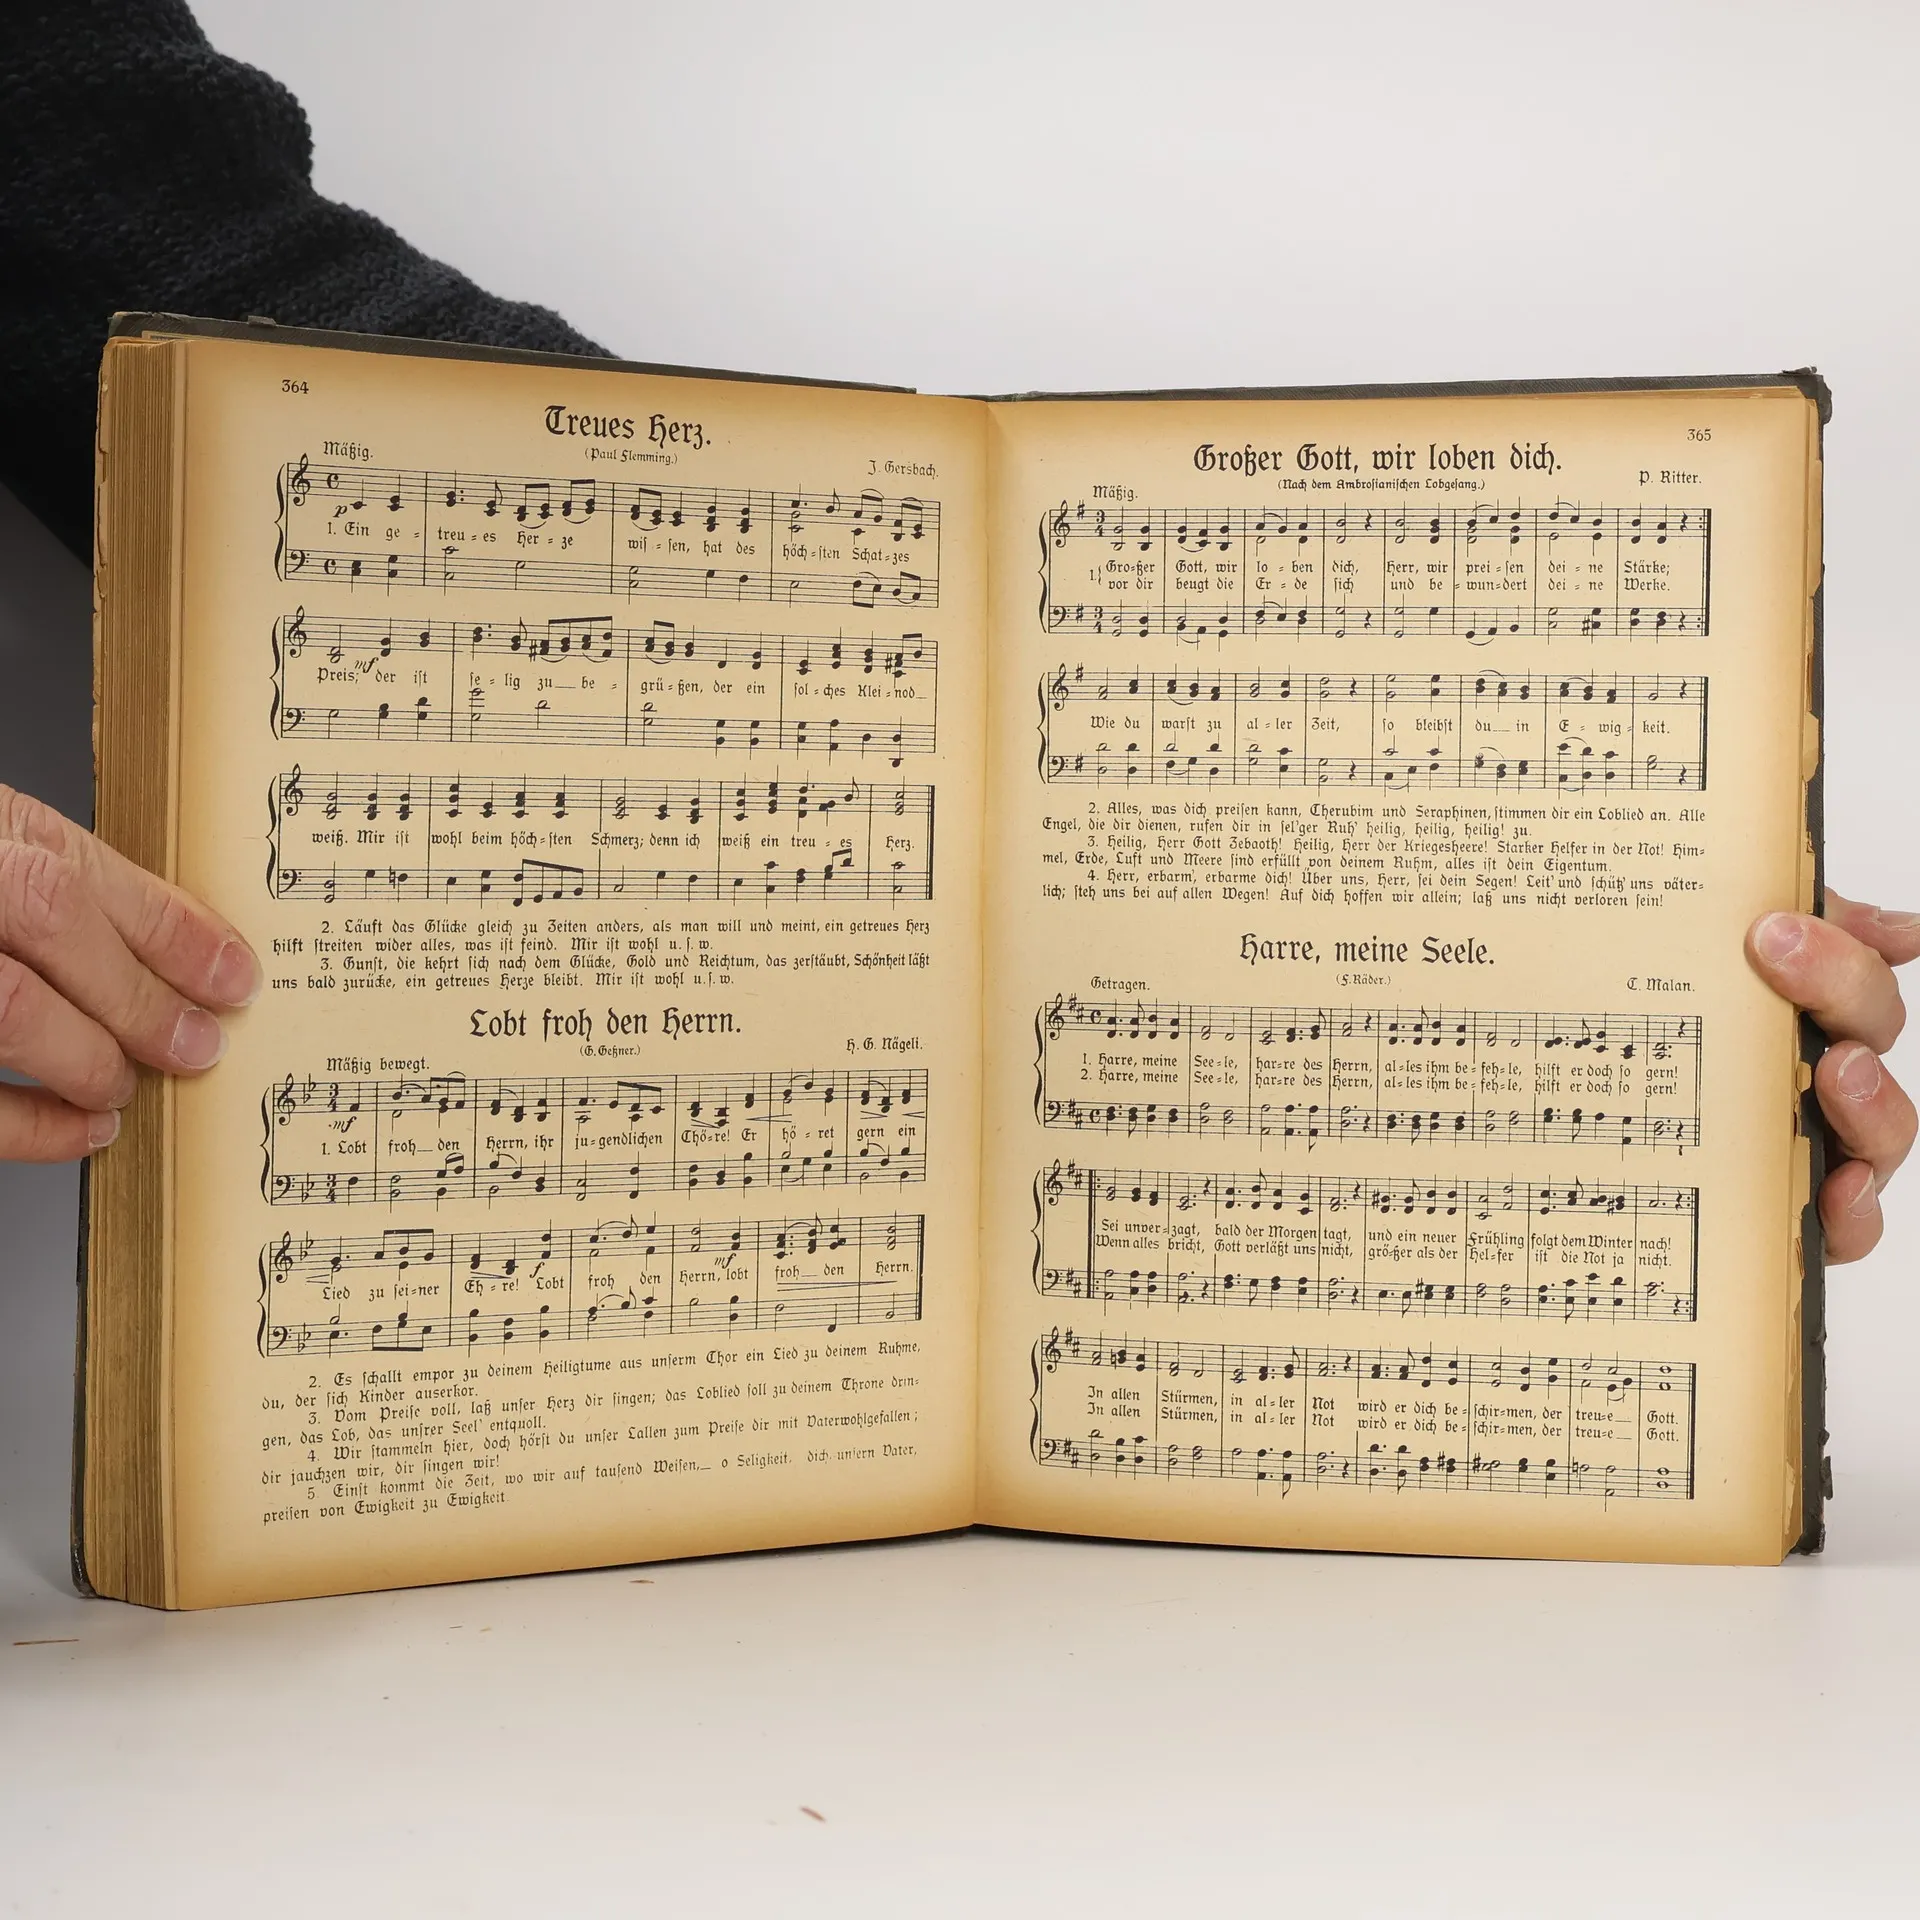 364
Treues Herz.
(Paul Flemming.)
Mäßig.
J. Gersbach.
p
1. Ein ge = treu = es Her = ze wis = sen, hat des höch = sten Schat = zes
mf
Preis; der ist se = lig zu — be = grü = ßen, der ein sol = ches Klei = nod —
weiß. Mir ist wohl beim höch = sten Schmerz; denn ich weiß ein treu = es Herz.
2. Läuft das Glücke gleich zu Zeiten anders, als man will und meint, ein getreues Herz
hilft streiten wider alles, was ist feind. Mir ist wohl u. s. w.
3. Gunst, die kehrt sich nach dem Glücke, Gold und Reichtum, das zerstäubt, Schönheit läßt
uns bald zurücke, ein getreues Herze bleibt. Mir ist wohl u. s. w.
Lobt froh den Herrn.
(G. Geßner.)
Mäßig bewegt.
H. G. Nägeli.
mf
1. Lobt froh — den Herrn, ihr ju = gendlichen Chö = re! Er hö = ret gern ein
f mf
Lied zu sei = ner Eh = re! Lobt froh den Herrn, lobt froh — den Herrn.
2. Es schallt empor zu deinem Heiligtume aus unserm Chor ein Lied zu deinem Ruhme,
du, der sich Kinder auserkor.
3. Vom Preise voll, laß unser Herz dir singen; das Loblied soll zu deinem Throne drin=
gen, das Lob, das unsrer Seel' entquoll.
4. Wir stammeln hier, doch hörst du unser Lallen zum Preise dir mit Vaterwohlgefallen;
dir jauchzen wir, dir singen wir!
5. Einst kommt die Zeit, wo wir auf tausend Weisen, — o Seligkeit. dich, unsern Vater,
preisen von Ewigkeit zu Ewigkeit.
365
Großer Gott, wir loben dich.
(Nach dem Ambrosianischen Lobgesang.)
Mäßig.
P. Ritter.
1. Gro = ßer Gott, wir lo = ben dich, Herr, wir prei = sen dei = ne Stärke;
vor dir beugt die Er = de sich und be = wun = dert dei = ne Werke.
Wie du warst zu al = ler Zeit, so bleibst du — in E = wig = keit.
2. Alles, was dich preisen kann, Cherubim und Seraphinen, stimmen dir ein Loblied an. Alle
Engel, die dir dienen, rufen dir in sel'ger Ruh' heilig, heilig, heilig! zu.
3. Heilig, Herr Gott Zebaoth! Heilig, Herr der Kriegesheere! Starker Helfer in der Not! Him=
mel, Erde, Luft und Meere sind erfüllt von deinem Ruhm, alles ist dein Eigentum.
4. Herr, erbarm', erbarme dich! Über uns, Herr, sei dein Segen! Leit' und schütz' uns väter=
lich; steh uns bei auf allen Wegen! Auf dich hoffen wir allein; laß uns nicht verloren sein!
Harre, meine Seele.
(F. Räder.)
Getragen.
C. Malan.
1. Harre, meine See = le, har = re des Herrn, al = les ihm be = feh = le, hilft er doch so gern!
2. Harre, meine See = le, har = re des Herrn, al = les ihm be = feh = le, hilft er doch so gern!
Sei unver = zagt, bald der Morgen tagt, und ein neuer Frühling folgt dem Winter nach!
Wenn alles bricht, Gott verläßt uns nicht, grö = ßer als der Hel = fer ist die Not ja nicht.
In allen Stürmen, in al = ler Not wird er dich be = schir = men, der treu = e — Gott.
In allen Stürmen, in al = ler Not wird er dich be = schir = men, der treu = e — Gott.